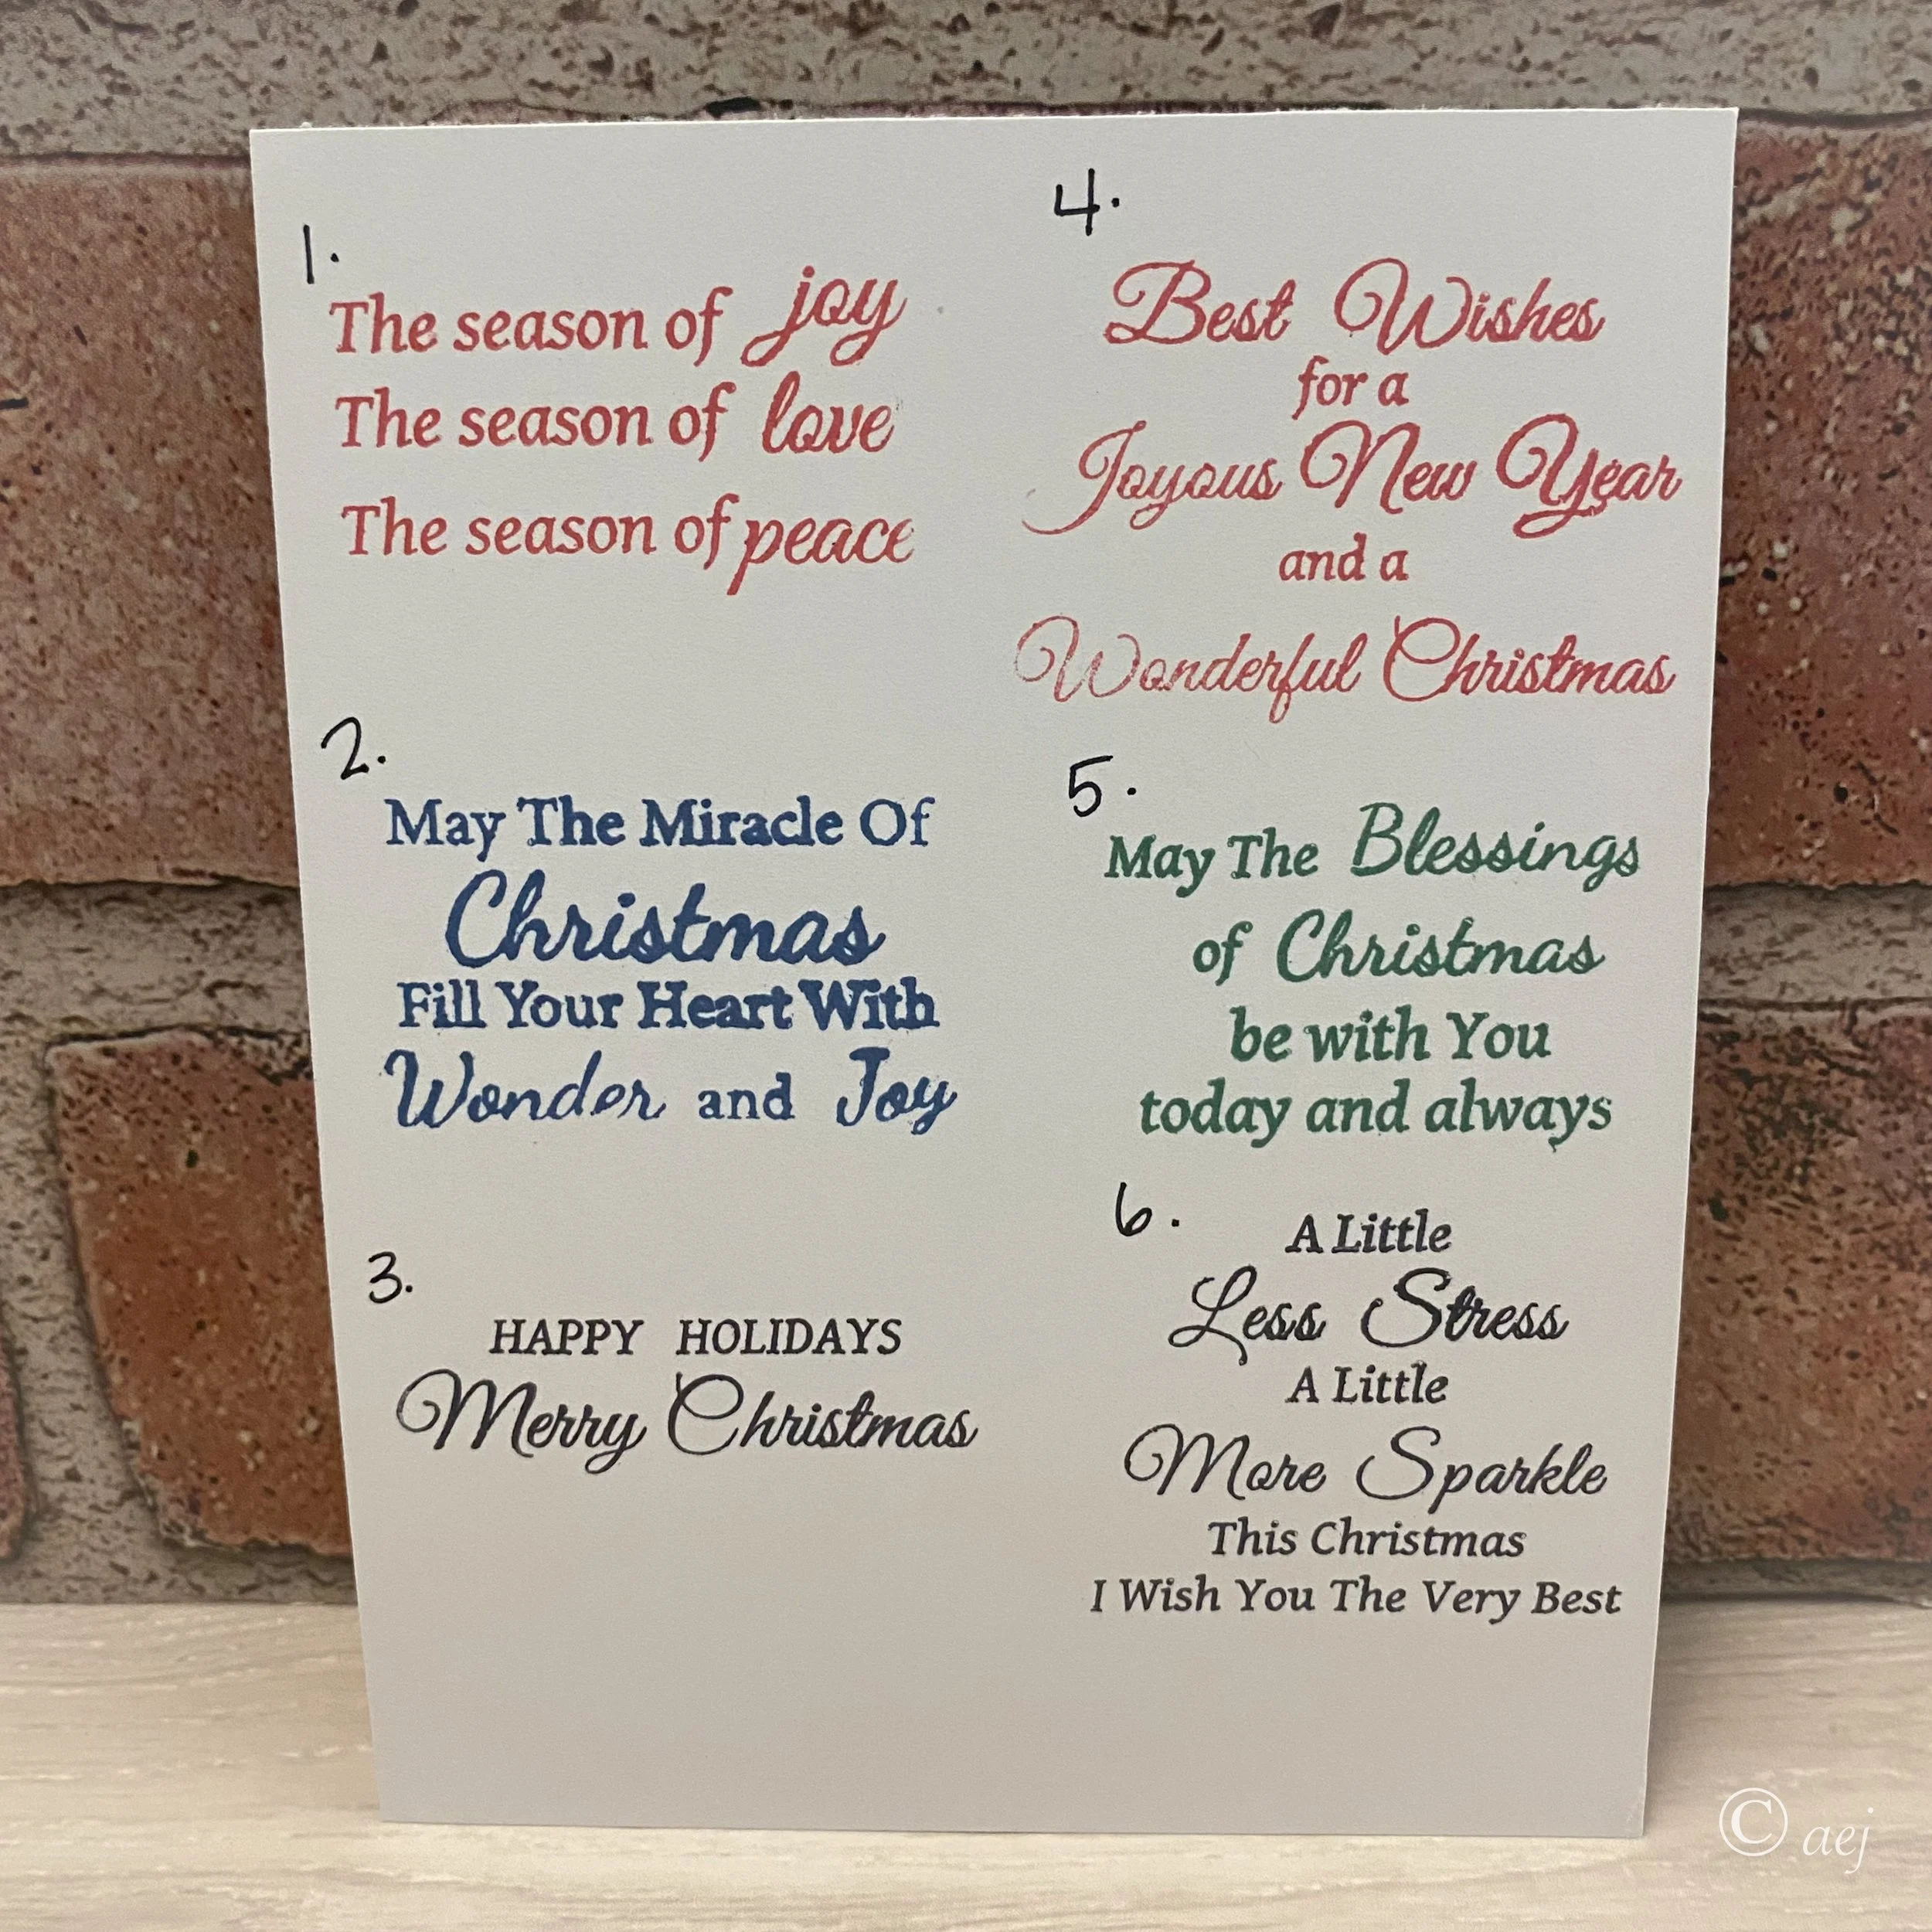 1.
The season of joy
The season of love
The season of peace
2.
May The Miracle Of
Christmas
Fill Your Heart With
Wonder and Joy
3.
HAPPY HOLIDAYS
Merry Christmas
4.
Best Wishes
for a
Joyous New Year
and a
Wonderful Christmas
5.
May The Blessings
of Christmas
be with You
today and always
6.
A Little
Less Stress
A Little
More Sparkle
This Christmas
I Wish You The Very Best
© aej